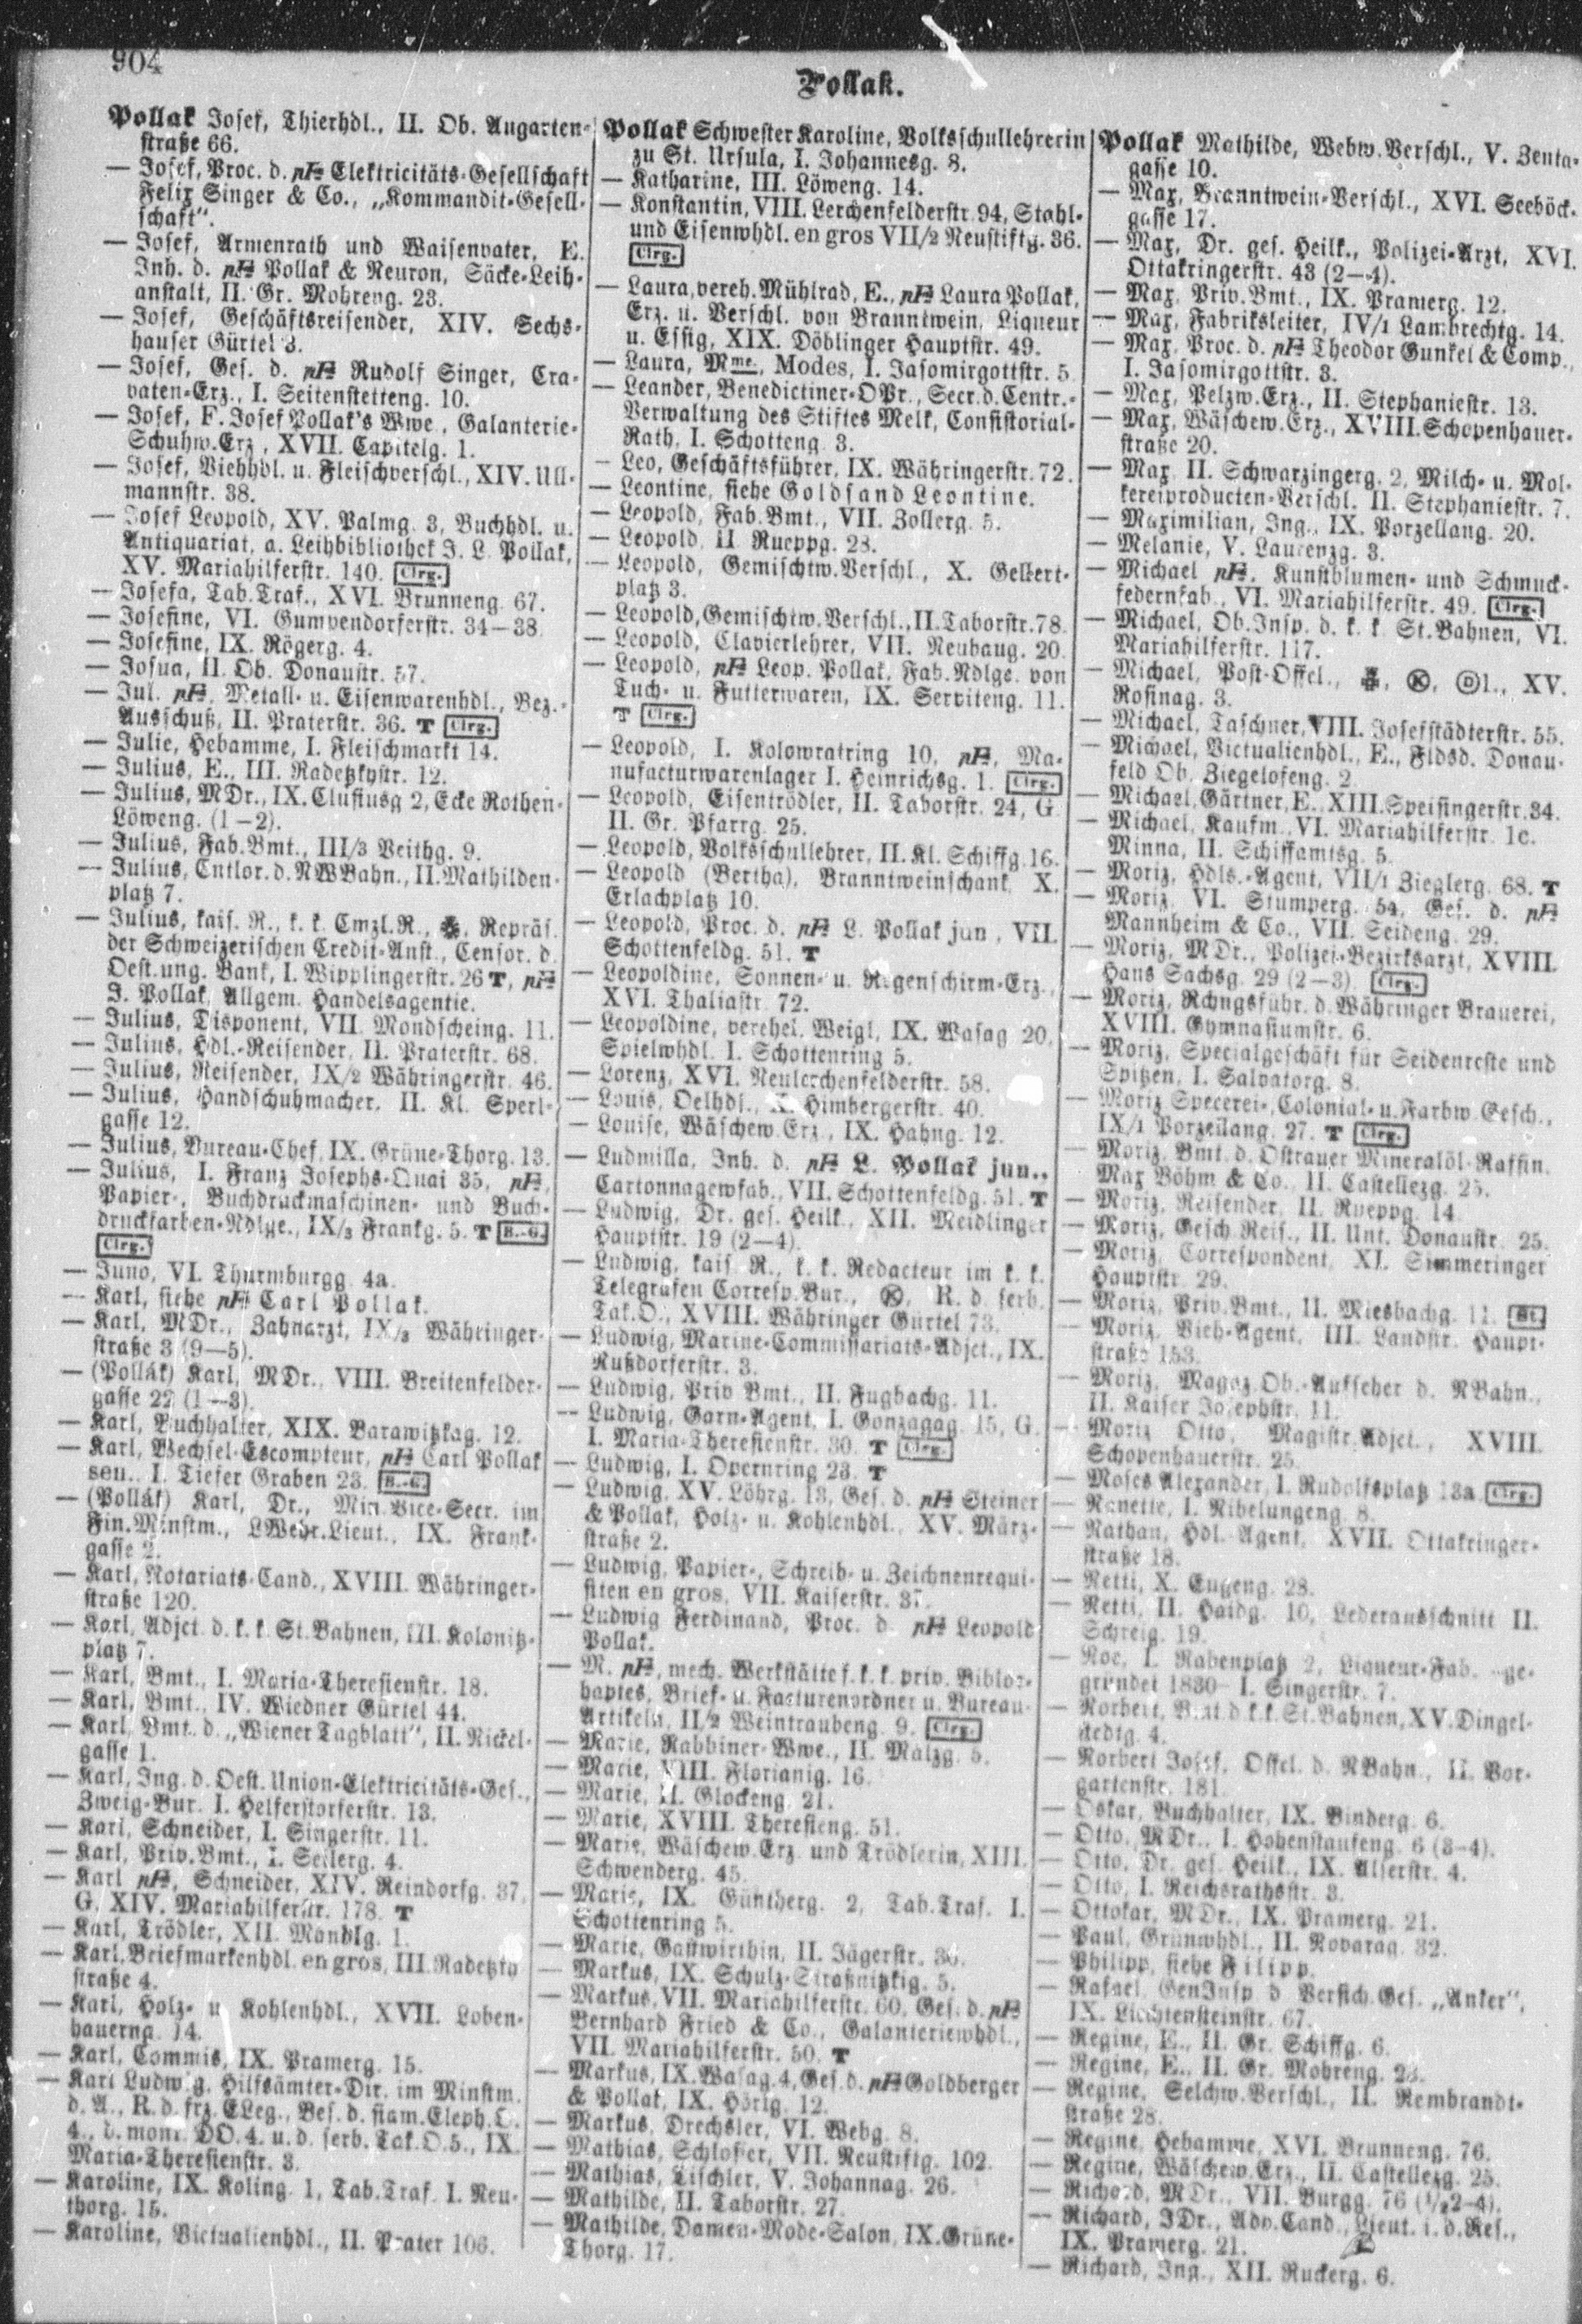 904
Pollak.
Pollak Josef, Thierhdl., II. Ob. Augarten-
straße 66.
— Josef, Proc. d. pH Elektricitäts-Gesellschaft
Felix Singer & Co., „Kommandit-Gesell-
schaft".
— Josef, Armenrath und Waisenvater, E.
Inh. d. pH Pollak & Neuron, Säcke-Leih-
anstalt, II. Gr. Mohreng. 23.
— Josef, Geschäftsreisender, XIV. Sechs-
hauser Gürtel 3.
— Josef, Ges. d. pH Rudolf Singer, Cra-
vaten-Erz., I. Seitenstetteng. 10.
— Josef, F. Josef Pollak's Wwe., Galanterie-
Schuhw.Erz., XVII. Capitelg. 1.
— Josef, Viehhdl. u. Fleischverschl., XIV. Ull-
mannstr. 38.
— Josef Leopold, XV. Palmg. 3, Buchhdl. u.
Antiquariat, a. Leihbibliothek J. L. Pollak,
XV. Mariahilferstr. 140. Clrg.
— Josefa, Tab.Traf., XVI. Brunneng. 67.
— Josefine, VI. Gumpendorferstr. 34—38.
— Josefine, IX. Rögerg. 4.
— Josua, II. Ob. Donaustr. 57.
— Jul. pH, Metall- u. Eisenwarenhdl., Bez.-
Ausschuß, II. Praterstr. 36. T Clrg.
— Julie, Hebamme, I. Fleischmarkt 14.
— Julius, E., III. Radetzkystr. 12.
— Julius, MDr., IX. Clusiusg 2, Ecke Rothen-
Löweng. (1—2).
— Julius, Fab.Bmt., III/3 Veithg. 9.
— Julius, Cntlor. d. NWBahn., II. Mathilden-
platz 7.
— Julius, kais. R., k. k. Cmzl.R., Repräs.
der Schweizerischen Credit-Anst., Censor. d.
Oest.ung. Bank, I. Wipplingerstr. 26 T, pH
J. Pollak, Allgem. Handelsagentie.
— Julius, Disponent, VII. Mondscheing. 11.
— Julius, Hdl.-Reisender, II. Praterstr. 68.
— Julius, Reisender, IX/2 Währingerstr. 46.
— Julius, Handschuhmacher, II. Kl. Sperl-
gasse 12.
— Julius, Bureau-Chef, IX. Grüne-Thorg. 13.
— Julius, I. Franz Josephs-Quai 35, pH,
Papier-, Buchdruckmaschinen- und Buch-
druckfarben-Ndlge., IX/3 Frankg. 5. T B.-G.
Clrg.
— Juno, VI. Thurmburgg. 4a.
— Karl, siehe pH Carl Pollak.
— Karl, MDr., Zahnarzt, IX/3 Währinger-
straße 3 (9—5).
— (Pollák) Karl, MDr., VIII. Breitenfelder-
gasse 22 (1—3).
— Karl, Buchhalter, XIX. Barawitzkag. 12.
— Karl, Wechsel-Escompteur, pH Carl Pollak
sen., I. Tiefer Graben 23. B.-G.
— (Pollák) Karl, Dr., Min.Vice-Secr. im
Fin.Minstm., LWehr.Lieut., IX. Frank-
gasse 2.
— Karl, Notariats-Cand., XVIII. Währinger-
straße 120.
— Karl, Adjct. d. k. k. St.Bahnen, III. Kolonitz-
platz 7.
— Karl, Bmt., I. Maria-Theresienstr. 18.
— Karl, Bmt., IV. Wiedner Gürtel 44.
— Karl, Bmt. d. „Wiener Tagblatt", II. Nickel-
gasse 1.
— Karl, Ing. d. Oest. Union-Elektricitäts-Ges.,
Zweig-Bur. I. Helferstorferstr. 13.
— Karl, Schneider, I. Singerstr. 11.
— Karl, Priv.Bmt., I. Seilerg. 4.
— Karl pH, Schneider, XIV. Reindorfg. 37,
G. XIV. Mariahilferstr. 178. T
— Karl, Trödler, XII. Mandlg. 1.
— Karl, Briefmarkenhdl. en gros, III. Radetzky
straße 4.
— Karl, Holz- u. Kohlenhdl., XVII. Loben-
hauerng. 14.
— Karl, Commis, IX. Pramerg. 15.
— Karl Ludwig, Hilfsämter-Dir. im Minstm.
d. A., R. d. frz. ELeg., Bes. d. siam. Eleph.O.
4., d. mont. DO. 4. u. d. serb. Tak.O.5., IX.
Maria-Theresienstr. 3.
— Karoline, IX. Koling. 1, Tab.Traf. I. Neu-
thorg. 15.
— Karoline, Victualienhdl., II. Prater 106.
Pollak Schwester Karoline, Volksschullehrerin
zu St. Ursula, I. Johannesg. 8.
— Katharine, III. Löweng. 14.
— Konstantin, VIII. Lerchenfelderstr. 94, Stahl-
und Eisenwhdl. en gros VII/2 Neustiftg. 36.
Clrg.
— Laura, vereh. Mühlrad, E., pH Laura Pollak,
Erz. u. Verschl. von Branntwein, Liqueur
u. Essig, XIX. Döblinger Hauptstr. 49.
— Laura, Mme., Modes, I. Jasomirgottstr. 5.
— Leander, Benedictiner-OPr., Secr. d. Centr.-
Verwaltung des Stiftes Melk, Consistorial-
Rath, I. Schotteng. 3.
— Leo, Geschäftsführer, IX. Währingerstr. 72.
— Leontine, siehe Goldsand Leontine.
— Leopold, Fab.Bmt., VII. Zollerg. 5.
— Leopold, II. Rueppg. 28.
— Leopold, Gemischtw.Verschl., X. Gellert-
platz 3.
— Leopold, Gemischtw.Verschl., II. Taborstr. 78.
— Leopold, Clavierlehrer, VII. Neubaug. 20.
— Leopold, pH Leop. Pollak, Fab.Ndlge. von
Tuch- u. Futterwaren, IX. Serviteng. 11.
T Clrg.
— Leopold, I. Kolowratring 10, pH, Ma-
nufacturwarenlager I. Heinrichsg. 1. Clrg.
— Leopold, Eisentrödler, II. Taborstr. 24, G.
II. Gr. Pfarrg. 25.
— Leopold, Volksschullehrer, II. Kl. Schiffg. 16.
— Leopold (Bertha), Branntweinschank, X.
Erlachplatz 10.
— Leopold, Proc. d. pH L. Pollak jun., VII.
Schottenfeldg. 51. T
— Leopoldine, Sonnen- u. Regenschirm-Erz.,
XVI. Thaliastr. 72.
— Leopoldine, verehel. Weigl, IX. Wasag. 20,
Spielwhdl. I. Schottenring 5.
— Lorenz, XVI. Neulerchenfelderstr. 58.
— Louis, Oelhdl., X. Himbergerstr. 40.
— Louise, Wäschew.Erz., IX. Hahng. 12.
— Ludmilla, Inh. d. pH L. Pollak jun.,
Cartonnagewfab., VII. Schottenfeldg. 51. T
— Ludwig, Dr. ges. Heilk., XII. Meidlinger
Hauptstr. 19 (2—4).
— Ludwig, kais. R., k. k. Redacteur im k. k.
Telegrafen Corresp.Bur., R. d. serb.
Tak.O., XVIII. Währinger Gürtel 73.
— Ludwig, Marine-Commissariats-Adjct., IX.
Nußdorferstr. 3.
— Ludwig, Priv Bmt., II. Fugbachg. 11.
— Ludwig, Garn-Agent, I. Gonzagag. 15, G.
I. Maria-Theresienstr. 30. T Clrg.
— Ludwig, I. Opernring 23. T
— Ludwig, XV. Löhrg. 13, Ges. d. pH Steiner
& Pollak, Holz- u. Kohlenhdl., XV. März-
straße 2.
— Ludwig, Papier-, Schreib- u. Zeichnenrequi-
siten en gros, VII. Kaiserstr. 37.
— Ludwig Ferdinand, Proc. d. pH Leopold
Pollak.
— M. pH, mech. Werkstätte f. k. k. priv. Biblor-
haptes, Brief- u. Facturenordner u. Bureau-
Artikeln, II/2 Weintraubeng. 9. Clrg.
— Marie, Rabbiner-Wwe., II. Malzg. 5.
— Marie, VIII. Florianig. 16.
— Marie, II. Glockeng. 21.
— Marie, XVIII. Theresieng. 51.
— Marie, Wäschew.Erz. und Trödlerin, XIII.
Schwenderg. 45.
— Marie, IX. Güntherg. 2, Tab.Traf. I.
Schottenring 5.
— Marie, Gastwirthin, II. Jägerstr. 36.
— Markus, IX. Schulz-Straßnitzkig. 5.
— Markus, VII. Mariahilferstr. 60, Ges. d. pH
Bernhard Fried & Co., Galanteriewhdl.,
VII. Mariahilferstr. 50. T
— Markus, IX. Wasag. 4, Ges. d. pH Goldberger
& Pollak, IX. Hörlg. 12.
— Markus, Drechsler, VI. Webg. 8.
— Mathias, Schlosser, VII. Neustiftg. 102.
— Mathias, Tischler, V. Johannag. 26.
— Mathilde, II. Taborstr. 27.
— Mathilde, Damen-Mode-Salon, IX. Grüne-
Thorg. 17.
Pollak Mathilde, Webw.Verschl., V. Zenta-
gasse 10.
— Max, Branntwein-Verschl., XVI. Seeböck-
gasse 17.
— Max, Dr. ges. Heilk., Polizei-Arzt, XVI.
Ottakringerstr. 43 (2—4).
— Max, Priv.Bmt., IX. Pramerg. 12.
— Max, Fabriksleiter, IV/1 Lambrechtg. 14.
— Max, Proc. d. pH Theodor Gunkel & Comp.,
I. Jasomirgottstr. 3.
— Max, Pelzw.Erz., II. Stephaniestr. 13.
— Max, Wäschew.Erz., XVIII. Schopenhauer-
straße 20.
— Max, II. Schwarzingerg. 2, Milch- u. Mol-
kereiproducten-Verschl. II. Stephaniestr. 7.
— Maximilian, Ing., IX. Porzellang. 20.
— Melanie, V. Laurenzg. 3.
— Michael pH, Kunstblumen- und Schmuck-
federnfab., VI. Mariahilferstr. 49. Clrg.
— Michael, Ob.Insp. d. k. k. St.Bahnen, VI.
Mariahilferstr. 117.
— Michael, Post-Offcl., XV.
Rosinag. 3.
— Michael, Taschner, VIII. Josefstädterstr. 55.
— Michael, Victualienhdl., E., Fldsd. Donau-
feld Ob. Ziegelofeng. 2.
— Michael, Gärtner, E., XIII. Speisingerstr. 34.
— Michael, Kaufm., VI. Mariahilferstr. 1c.
Minna, II. Schiffamtsg. 5.
— Moriz, Hdls.-Agent, VII/1 Zieglerg. 68. T
— Moriz, VI. Stumperg. 54, Ges. d. pH
Mannheim & Co., VII. Seideng. 29.
— Moriz, MDr., Polizei-Bezirksarzt, XVIII.
Hans Sachsg. 29 (2—3). Clrg.
— Moriz, Rchngsführ. d. Währinger Brauerei,
XVIII. Gymnasiumstr. 6.
— Moriz, Specialgeschäft für Seidenreste und
Spitzen, I. Salvatorg. 8.
— Moriz Specerei-, Colonial- u. Farbw.Gesch.,
IX/1 Porzellang. 27. T Clrg.
— Moriz, Bmt. d. Ostrauer Mineralöl-Raffin.
Max Böhm & Co., II. Castellezg. 25.
— Moriz, Reisender, II. Rueppg. 14.
— Moriz, Gesch Reis., II. Unt. Donaustr. 25.
— Moriz, Correspondent, XI. Simmeringer
Hauptstr. 29.
— Moriz, Priv.Bmt., II. Miesbachg. 11.
— Moriz, Vieh-Agent, III. Landstr. Haupt-
straße 153.
— Moriz, Magaz.Ob.-Aufseher d. NBahn.,
II. Kaiser Josephstr. 11.
— Moriz Otto, Magistr.Adjct., XVIII.
Schopenhauerstr. 25.
— Moses Alexander, I. Rudolfsplatz 13a. Clrg.
— Nanette, I. Nibelungeng. 8.
— Nathan, Hdl.-Agent, XVII. Ottakringer-
straße 18.
— Netti, X. Eugeng. 28.
— Netti, II. Haidg. 10, Lederausschnitt II.
Schreig. 19.
— Noe, I. Rabenplatz 2, Liqueur-Fab. ge-
gründet 1830 I. Singerstr. 7.
— Norbert, Bmt. d. k. k. St.Bahnen, XV. Dingel-
stedtg. 4.
— Norbert Josef, Offcl. d. NBahn., II. Vor-
gartenstr. 181.
— Oskar, Buchhalter, IX. Binderg. 6.
— Otto, MDr., I. Hohenstaufeng. 6 (3—4).
— Otto, Dr. ges. Heilk., IX. Alserstr. 4.
— Otto, I. Reichsrathsstr. 3.
— Ottokar, MDr., IX. Pramerg. 21.
— Paul, Grünwhdl., II. Novarag. 32.
— Philipp, siehe Filipp.
— Rafael, GenInsp. d. Versich.Ges. „Anker",
IX. Liechtensteinstr. 67.
— Regine, E., II. Gr. Schiffg. 6.
— Regine, E., II. Gr. Mohreng.
— Regine, Selchw.Verschl., II. Rembrandt-
straße 28.
— Regine, Hebamme, XVI. Brunneng. 76.
— Regine, Wäschew.Erz., II. Castellezg. 25.
— Richard, MDr., VII. Burgg. 76 (1/22—4).
— Richard, JDr., Adv.Cand., Lieut. i. d. Res.,
IX. Pramerg. 21.
— Richard, Ing., XII. Ruckerg. 6.